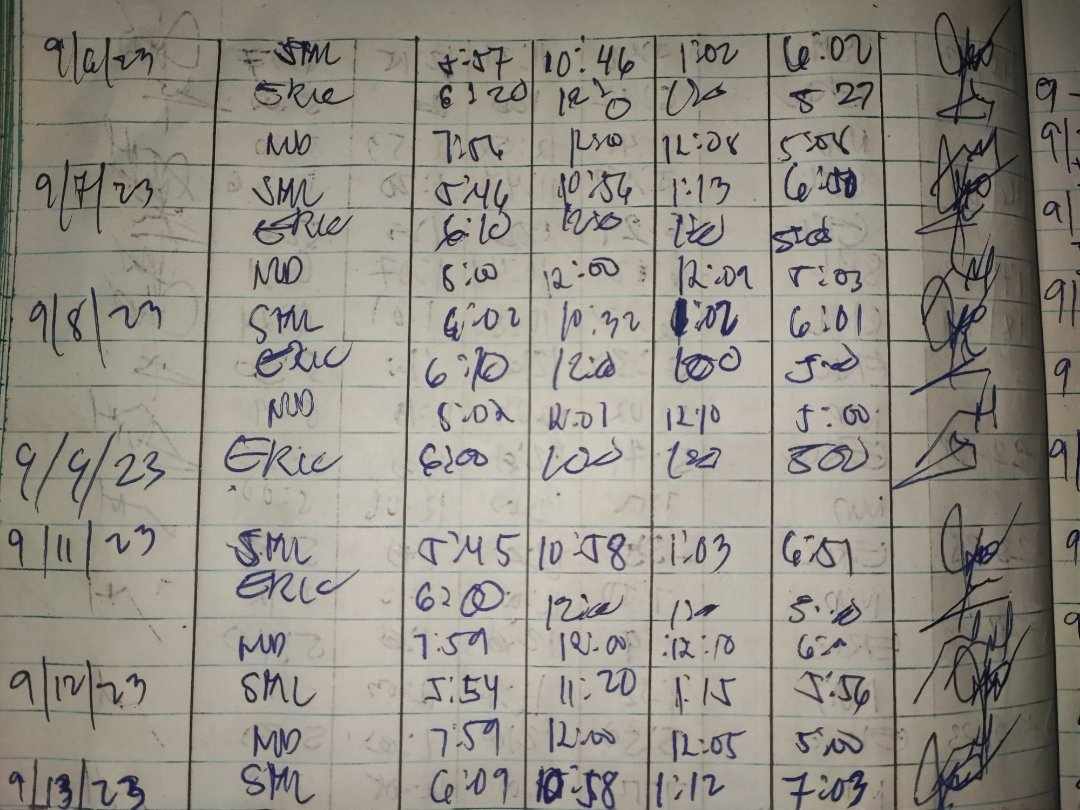 9/6/23 SML 5:57 10:46 1:02 6:02
ERIC 6:20 12:0 5 27
MD 7:56 12:00 12:08 5:08
9/7/23 SML 5:46 10:56 1:13
ERIC 6:10 12:0 1:00 5:00
MD 8:00 12:00 12:09 5:03
9/8/23 SML 6:02 10:32 1:02 6:01
ERIC 6:10 12:0 1:00 5:0
MD 8:02 12:01 12:10 5:00
9/9/23 ERIC 6:00 100 100 500
9/11/23 SML 5:45 10:58 1:03 6:51
ERIC 6:00 12:0 5:0
MD 7:59 12:00 12:10
9/12/23 SML 5:54 11:20 1:15 5:56
MD 7:59 12:00 12:05 5:00
9/13/23 SML 6:09 10:58 1:12 7:03